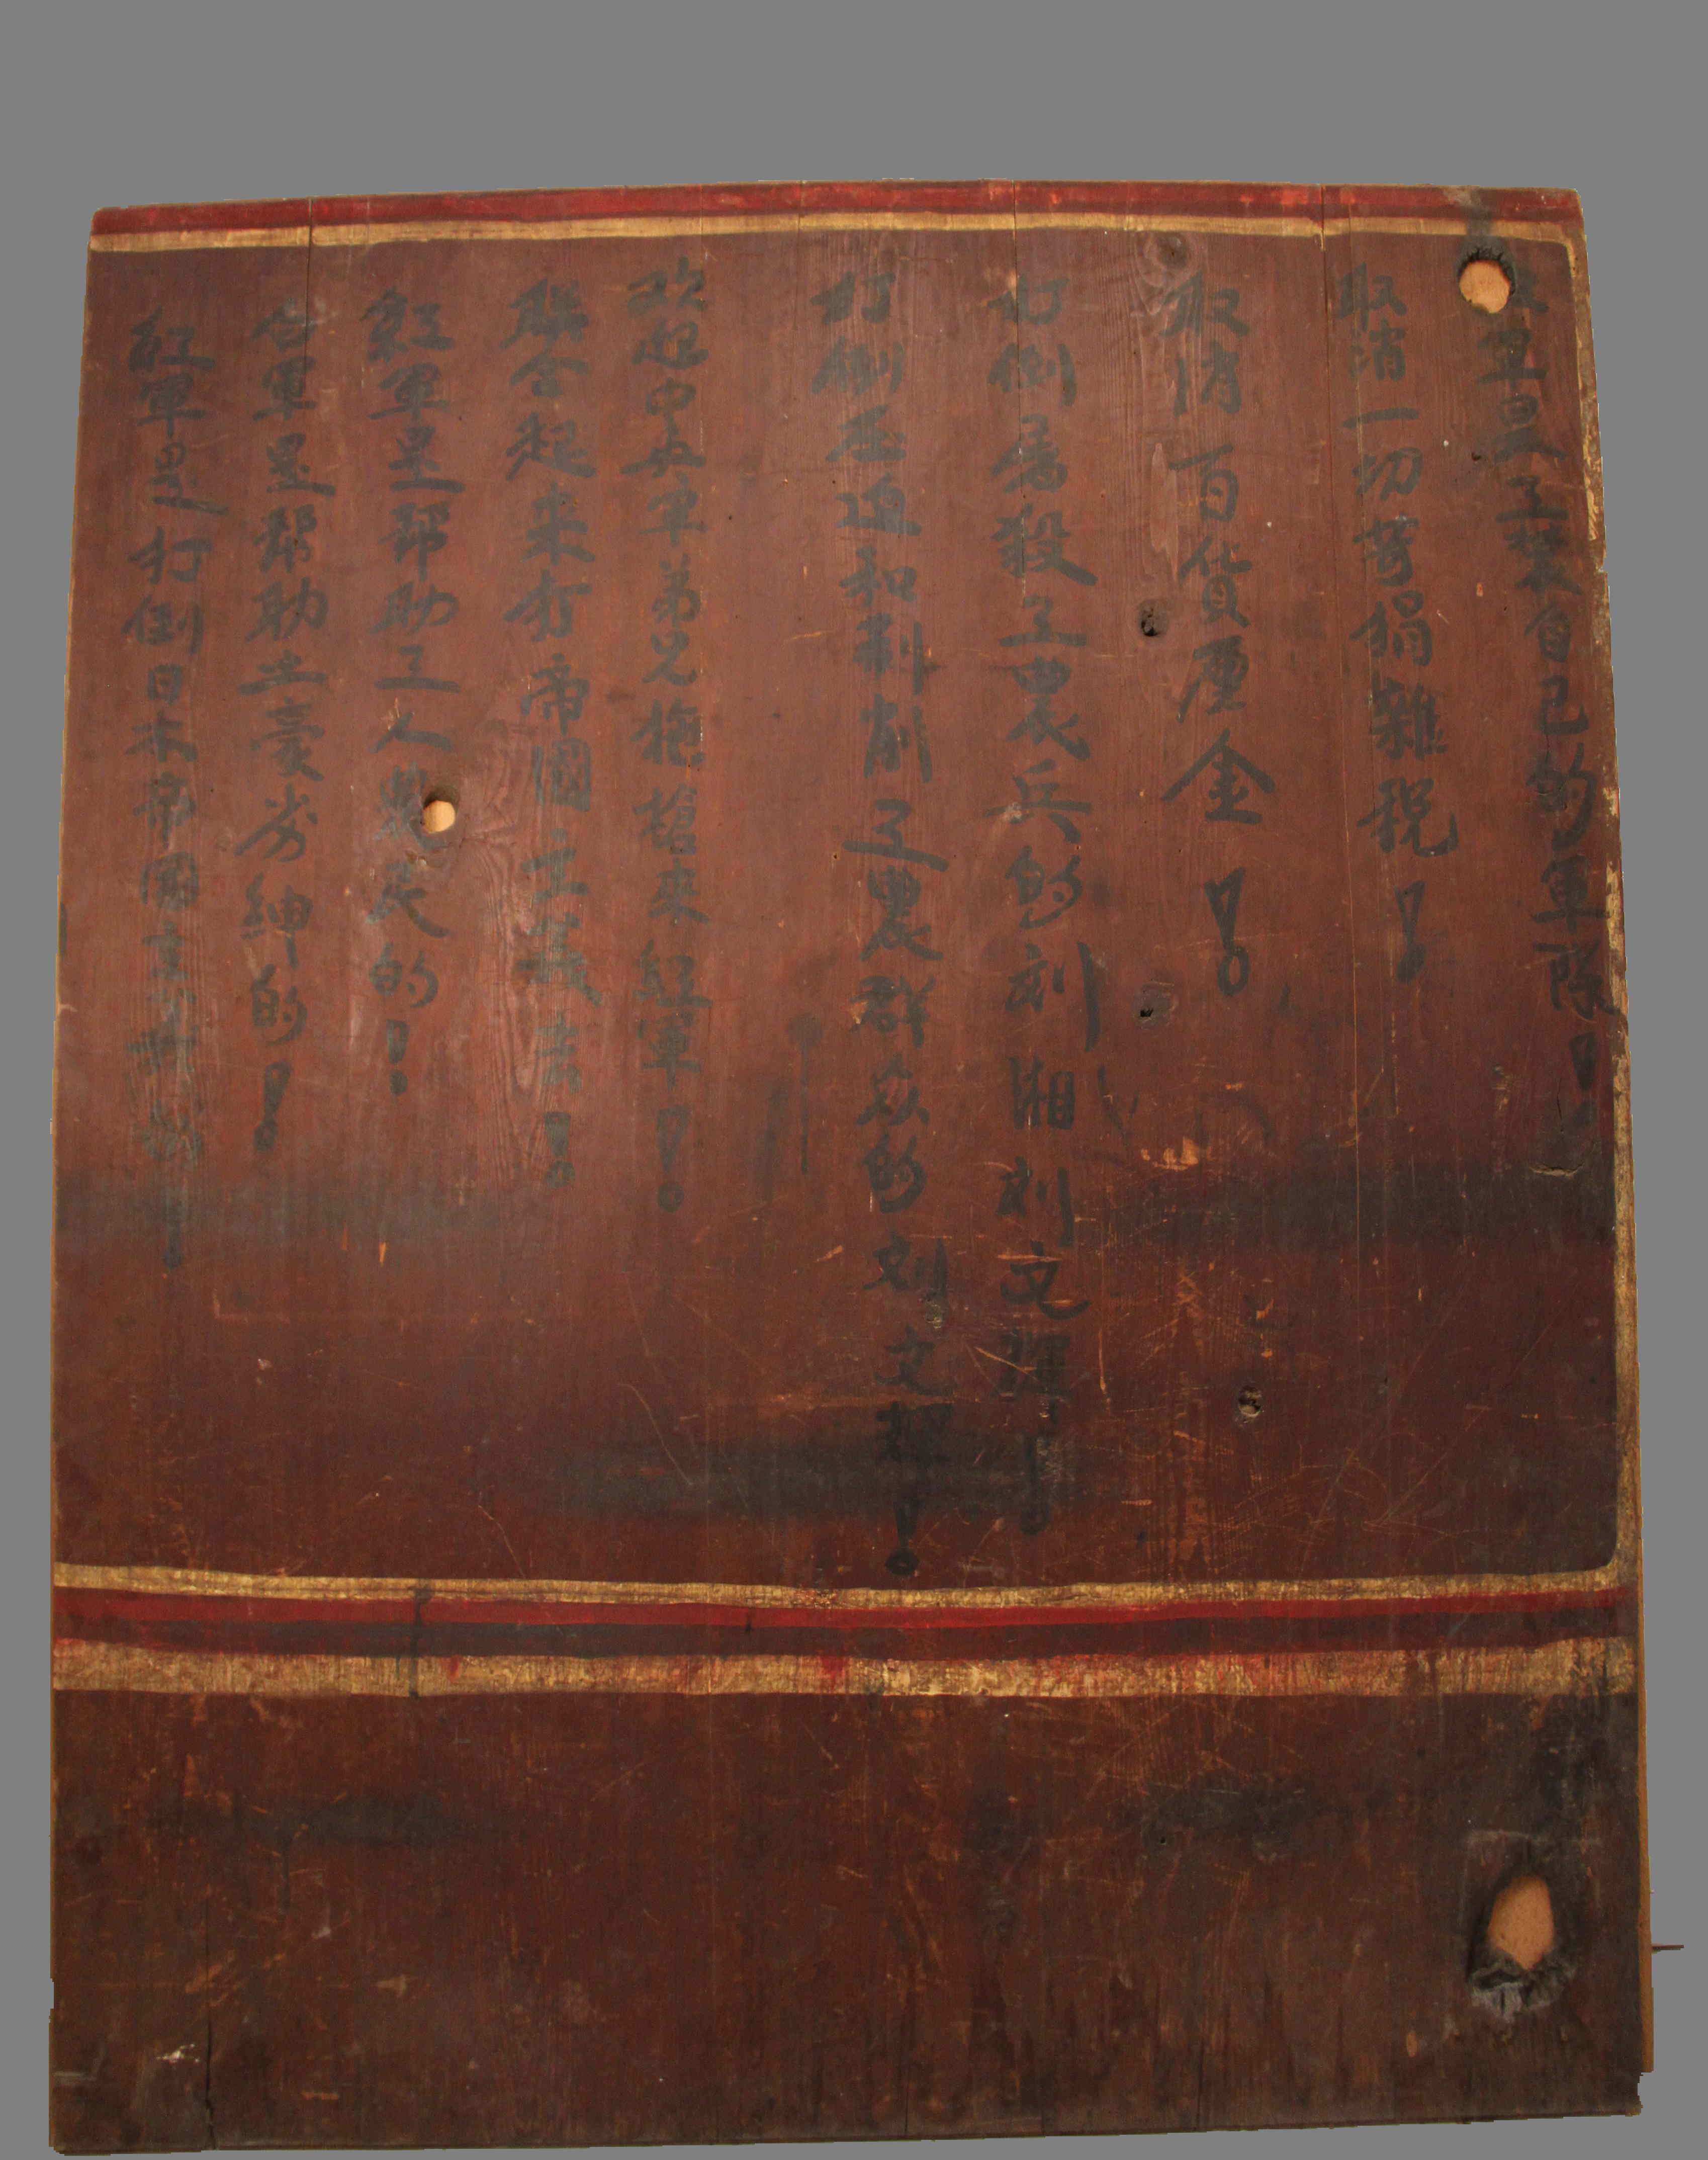 軍是工農自己的軍隊！
取消一切苛捐雜稅！
取消百貨厘金！
打倒屠殺工農兵的刘湘刘文輝！
打倒压迫和剝削工農群众的刘文！
欢迎中央軍弟兄拖槍來紅軍！
聯合起来打帝國主義去！
紅軍是帮助工人農民的！
白軍是帮助土豪劣紳的！
紅軍是打倒日本帝國主義的！